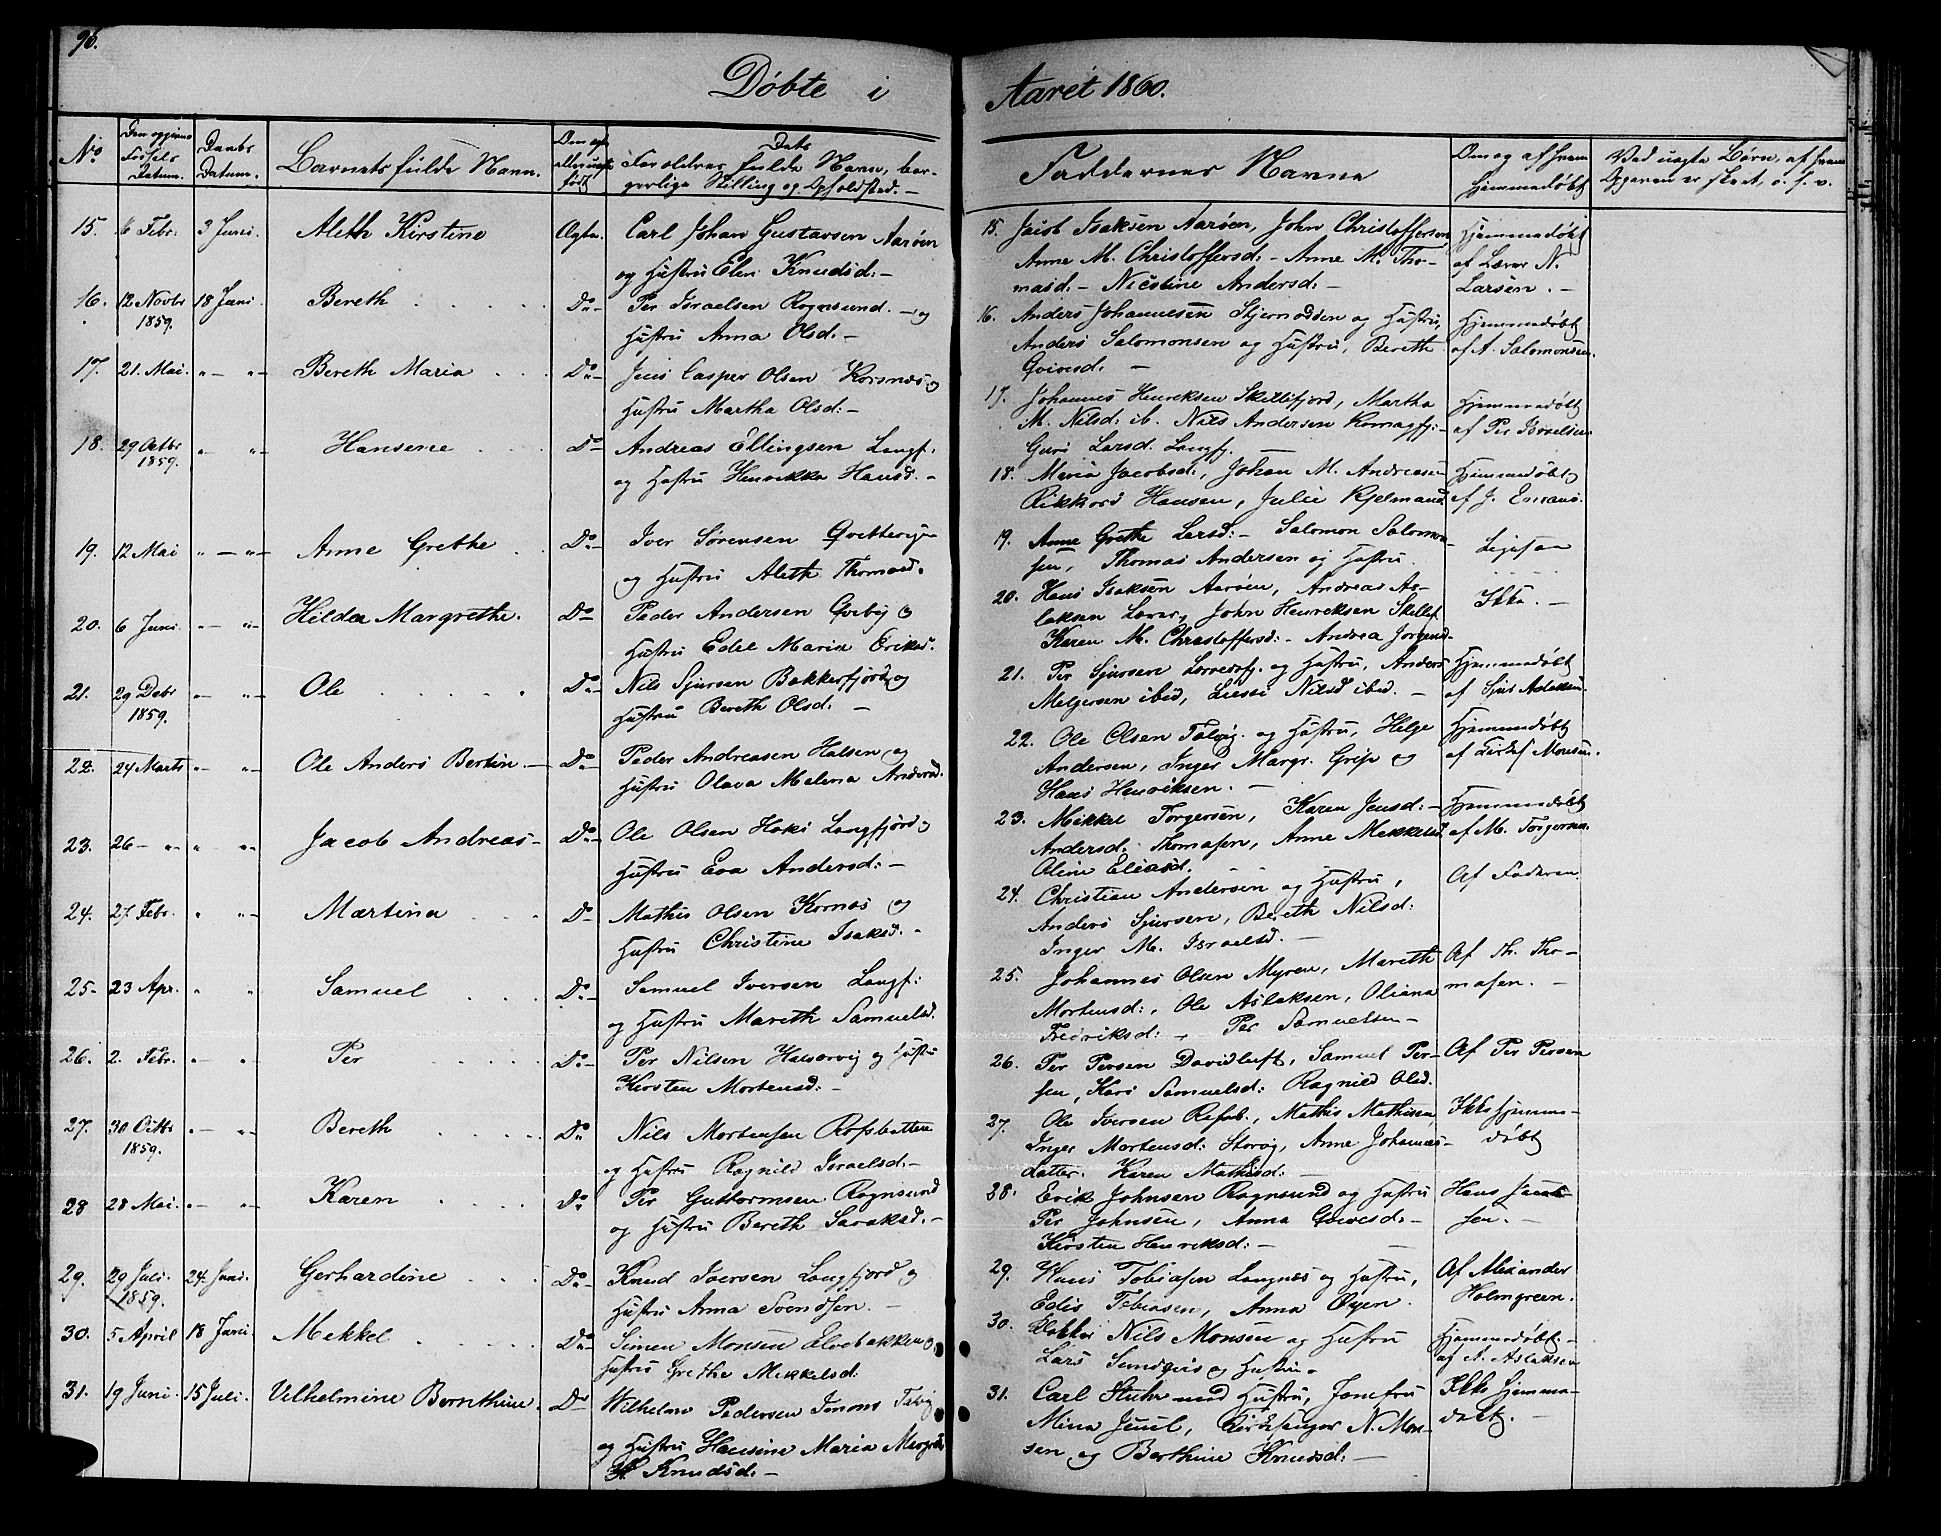 96.
Døbte i Aaret 1860.
No Fødsels Datum. Daabs Datum. Barnets fulde Navn. født Forældres fulde Navn, borgerlige Stilling og Opholdsted. Faddernes Navne Om og af hvem hjemmedøbt Ved uægte Børn, af hvem Opgaven er skeet, o. s. v.
15. 6 Febr: 3 Juni. Aleth Kirstine Ægte. Carl Johan Gustavsen Aarøen
og Hustru Elen Knudsd:
16. 12 Novbr 1859. 18 Juni. Bereth Do Per Israelsen Rognsund og
Hustru Anna Olsd:
17. 21. Mai. Bereth Maria Do Jens Casper Olsen Korsnæs og
Hustru Martha Olsd:
18. 29 Octbr 1859. Hansene Do Andreas Ellingsen Langf:
og Hustru Henrikke Hansd.
19. 12 Mai Anne Grethe Do Iver Sørensen
og Hustru Aleth Thomasd.
20. 6 Juni. Hilda Margrethe. Do Peder Andersen Qvibyg
Hustru Edel Marie Eriksd.
21. 29 Debr 1859. Ole Do Nils Sjursen Bakkerfjord og
Hustru Bereth Olsd:
22. 24 Marts Ole Anders Bertin Do Peder Andreasen Halsen og
Hustru Olava Malena Andersd.
23. 26 Jacob Andreas Do Ole Olsen Langfjord og
Hustru Eva Andersd:
24. 27 Febr. Martina Do Mathis Olsen Kornæs og
Hustru Christine Isaksd.
25. 23 Apr. Samuel Do Samuel Iversen Langf:
og Hustru Mareth Samuelsd.
26. 2. Febr. Per Do Per Nilsen og Hustru
Kirsten Mortensd:
27. 30 Octbr 1859. Bereth Do Nils Mortensen Rossbotten
og Hustru Ragnild Israelsd:
28 28 Mai. Karen Do Per Guttormsen Rognsund
og Hustru Bereth
29. 29 Juli. 1859. 24 Juni. Gerhardine Do Knud Iversen Langfjord og
Hustru Anna Svendsen.
30. 5 April 18 Juni. Mekkel Do Simen Monsen Elvebakken og
Hustru Grethe Mekkelsd:
31. 19 Juni. 15 Juli. Vilhelmine Bernthine. Do Wilhelm Pedersen Talvig
og Hustru Hansine Maria
Knudsd:
15. Jacob Isaksen Aarøen, John Christoffersen Hjemmedøbt
Anne M. Christoffersd: Anne M. Tho- af Lærer N.
masd: Nicoline Andersd: Larsen.
16. Anders Johannesen og Hustru, Hjemmedøbt
Anders Salomonsen og Hustru, Bereth af A. Salomonsen.
17. Johannes Henriksen Skillefjord, Martha Hjemmedøbt
M. Nilsd: ib. Nils Andersen Komagfj: af Per Israelsen
Guri Larsd. Langfj.
18. Maria Jacobsd:, Johan M. Andreasen Hjemmedøbt
Rikkard Hansen, Julie Kjelmand. af J.
19. Anne Grethe Larsd: Salomon Salomon- Ligesaa
sen, Thomas Andersen og Hustru.
20. Hans Isaksen Aarøen, Andreas As- Ikke.
laksen Lærer, John Henriksen Skillef.
Karen M. Christoffersd: Andrea
21. Per Sjursen og Hustru, Anders Hjemmedøbt
Melgersen ibid, Nilsd ibid. af Sjur Aslaksen.
22. Ole Olsen Talvig. og Hustru, Helge Hjemmedøbt
Andersen, Inger Margr. Grip og af Monsen.
Hans Henriksen.
23. Mikkel Torgersen, Karen Jensd: Hjemmedøbt
Andersd: Thomasen, Anne Mekkelsd. af M. Torgersen.
Oline Eliasd.
24. Christian Andersen og Hustru, Af Faderen.
Anders Sjursen, Bereth Nilsd:
Inger M. Israelsd.
25. Johannes Olsen Myren, Mareth Af Th. Tho-
Mortensd:, Ole Aslaksen, Oliana masen.
Fredriksd: Per Samuelsen
26. Per Persen Davidluft, Samuel Per- Af Per Persen
sen, Kari Samuelsd: Ragnild Olsd.
27. Ole Iversen Refsb., Mathis Mathisen Ikke hjemme-
Inger Mortensd: Storvig, Anne Johannes- døbt
datter. Karen Mathisd:
28. Erik Johnsen Rognsund og Hustru Hans
Per Johnsen, Anna sen.
Kirsten Henriksd:
29. Hans Tobiasen Langnæs og Hustru, Af Alexander
Edis Tobiasen, Anna Øyen. Holmgreen.
30. Klokker Nils Monsen og Hustru Hjemmedøbt
Lars Sundqvis og Hustru. af A. Aslaksen
31. Carl Huhn med Hustru, Jomfru Ikke hjemme-
Mina Juul, Kirkesanger N. Mon- døbt.
sen og Berthine Knudsd: